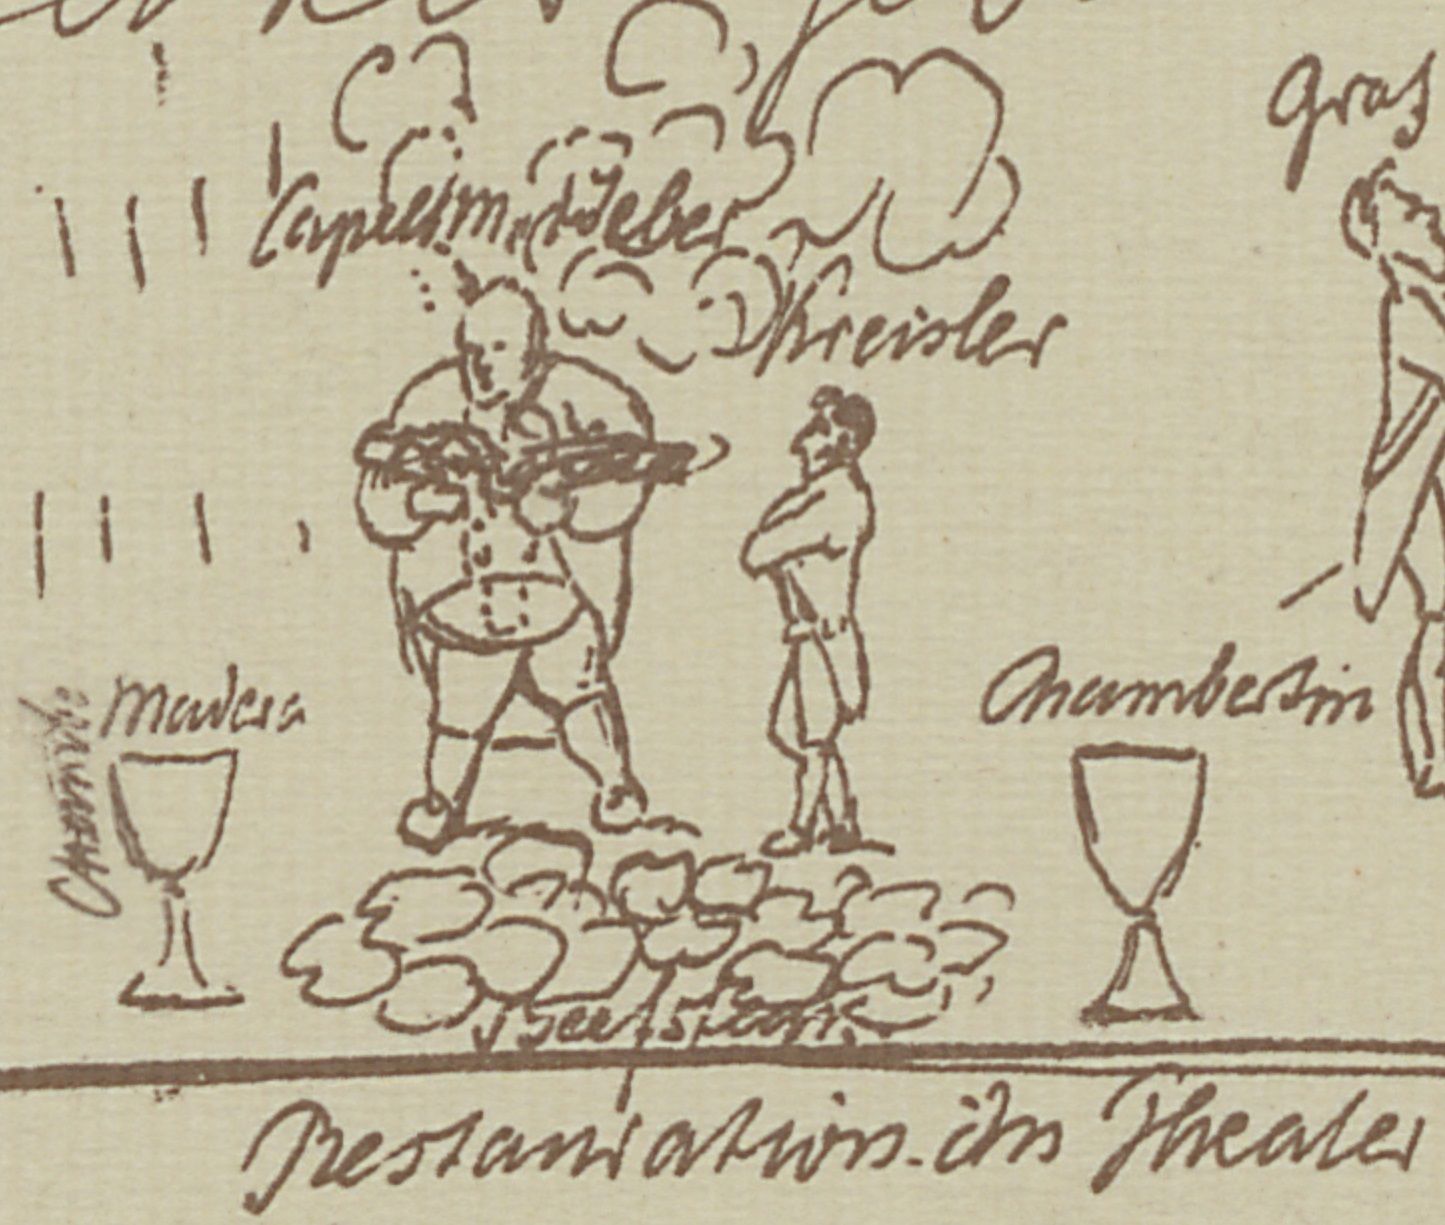 Graf
Capellm. Weber
Kreisler
Madera
Chambertin
Beefsteaks
Restauration im Theater